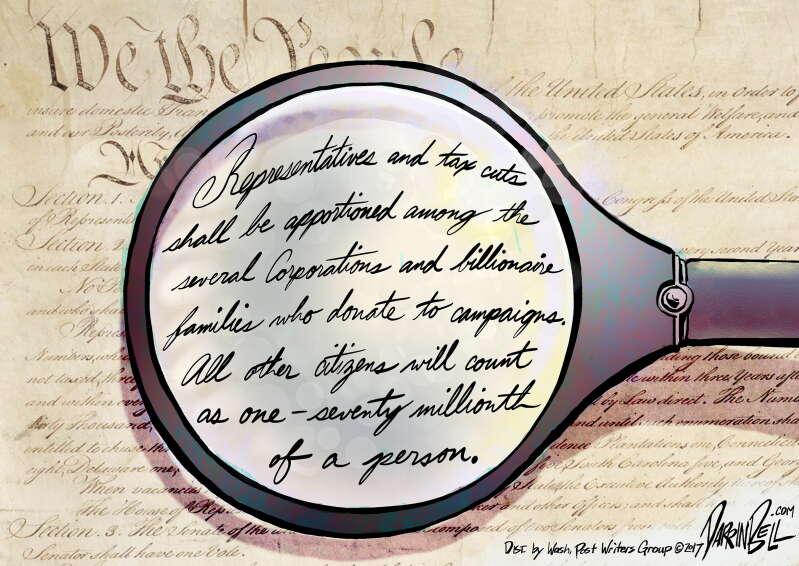 We the People
The United States, in order to
insure domestic Tran promote the general Welfare, and
and our Posterity, the United States of America.
Section. 1. Congress of the United States
of Represent
Section. 2 every second Year
in each State
No
and who shall
Represe
Representatives and tax cuts
shall be apportioned among the
several Corporations and billionaire
families who donate to campaigns.
All other citizens will count
as one-seventy millionth
of a person.
Numbers, whi ding those bound
not taxed, three within three Years after
and within every by Law direct. The Num
thirty Thousand, and until such enumeration shall
entitled to chuse th dence Plantations one, Connecticut
eight, Delaware one, five, South Carolina five, and Georg
When vacancies State, the Executive Authority
The House of Repre and other Officers; and shall
Section. 3. The Senate of the composed of two Senators from
Senator shall have one Vote.
Dist. by Wash. Post Writers Group ©2017 DARRINBELL.COM